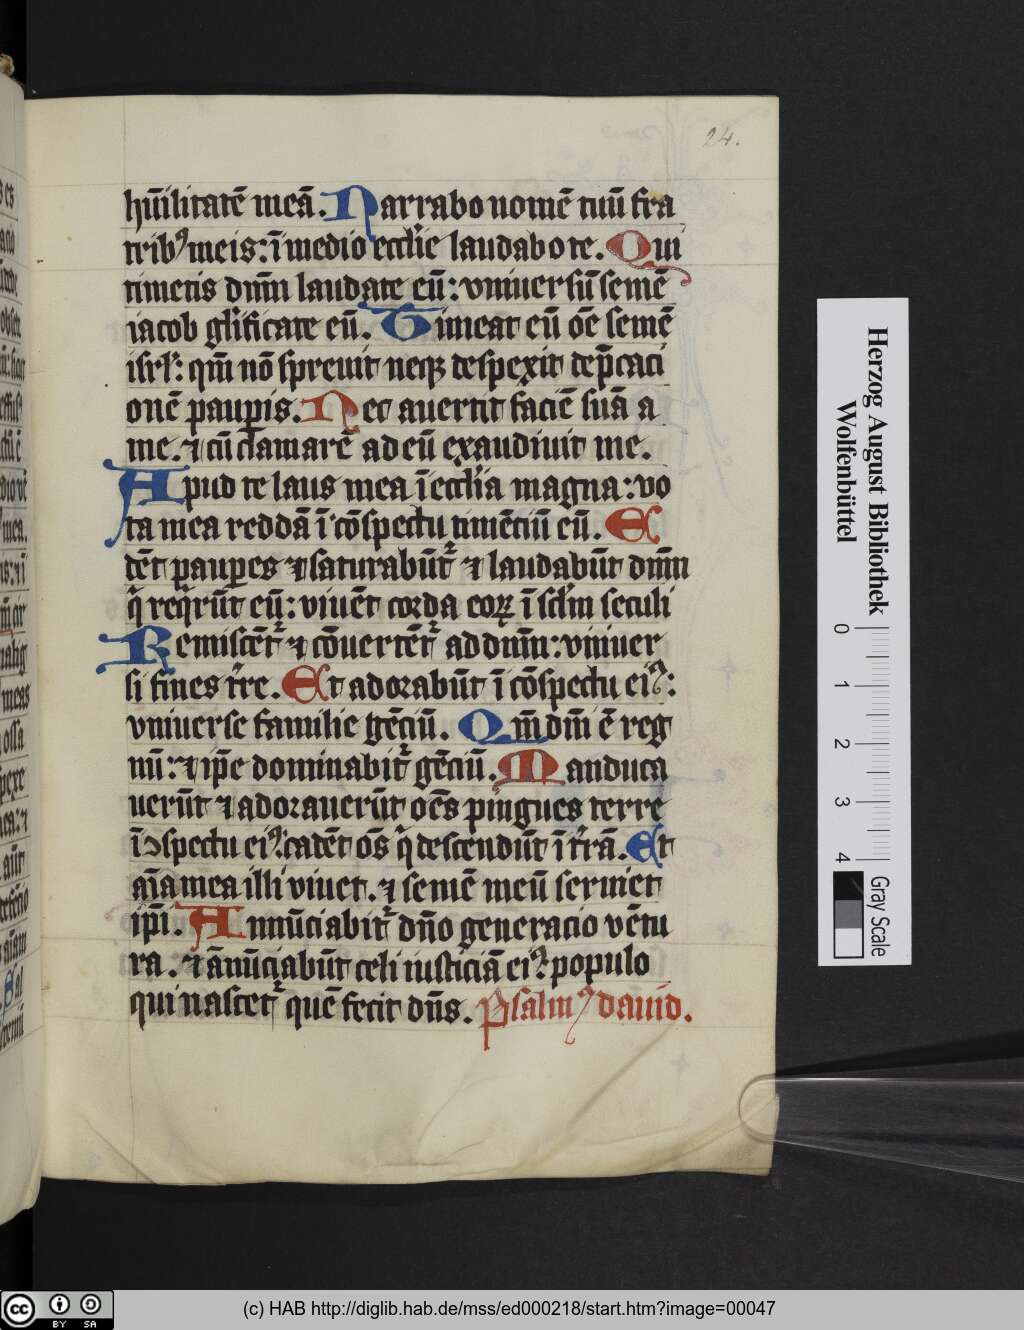 24.
hūilitatē meā. Narrabo nomē tuū fra
trib⁹ meis: ī medio ecclie laudabo te. Qui
timetis dm̄ laudate eū: vniuersū semē
iacob gl̄ificate eū. Timeat eū oē semē
isrl̄: qm̄ nō spreuit neqꝫ despexit dep̄caci
onē paup̲is. Nec auertit faciē suā a
me. ⁊ cū clamarē ad eū exaudiuit me.
Apud te laus mea ī ecclīa magna: vo
ta mea reddā ī cōspectu timētiū eū. E
dēt paup̲es ⁊ saturabūt᷑ ⁊ laudabūt dm̄
q̄ req̄rūt eū: viuēt corda eoꝝ ī scl̄m seculi
Remiscēt᷑ ⁊ cōuertēt᷑ ad dnm̄: vniuer
si fines tr̄re. Et adorabūt ī cōspectu ei⁹:
vniuerse familie gēciū. Qm̄ dm̄i ē reg
nū: ⁊ ip̄e dominabit᷑ gēciū. Manduca
uerūt ⁊ adorauerūt oēs pingues terre
ī ꝯspectu ei⁹: cadēt oēs q̄ descendūt ī tr̄rā. Et
aīa mea illi viuet. ⁊ semē meū seruiet
ip̄i. Annūciabit᷑ dn̄o generacio vētu
ra. ⁊ ānūciabūt celi iusticiā ei⁹ populo
qui nascet᷑ quē fecit dn̄s. Psalm⁹ dauid.
Herzog August Bibliothek
Wolfenbüttel
0 1 2 3 4
Gray Scale
BY SA
(c) HAB http://diglib.hab.de/mss/ed000218/start.htm?image=00047